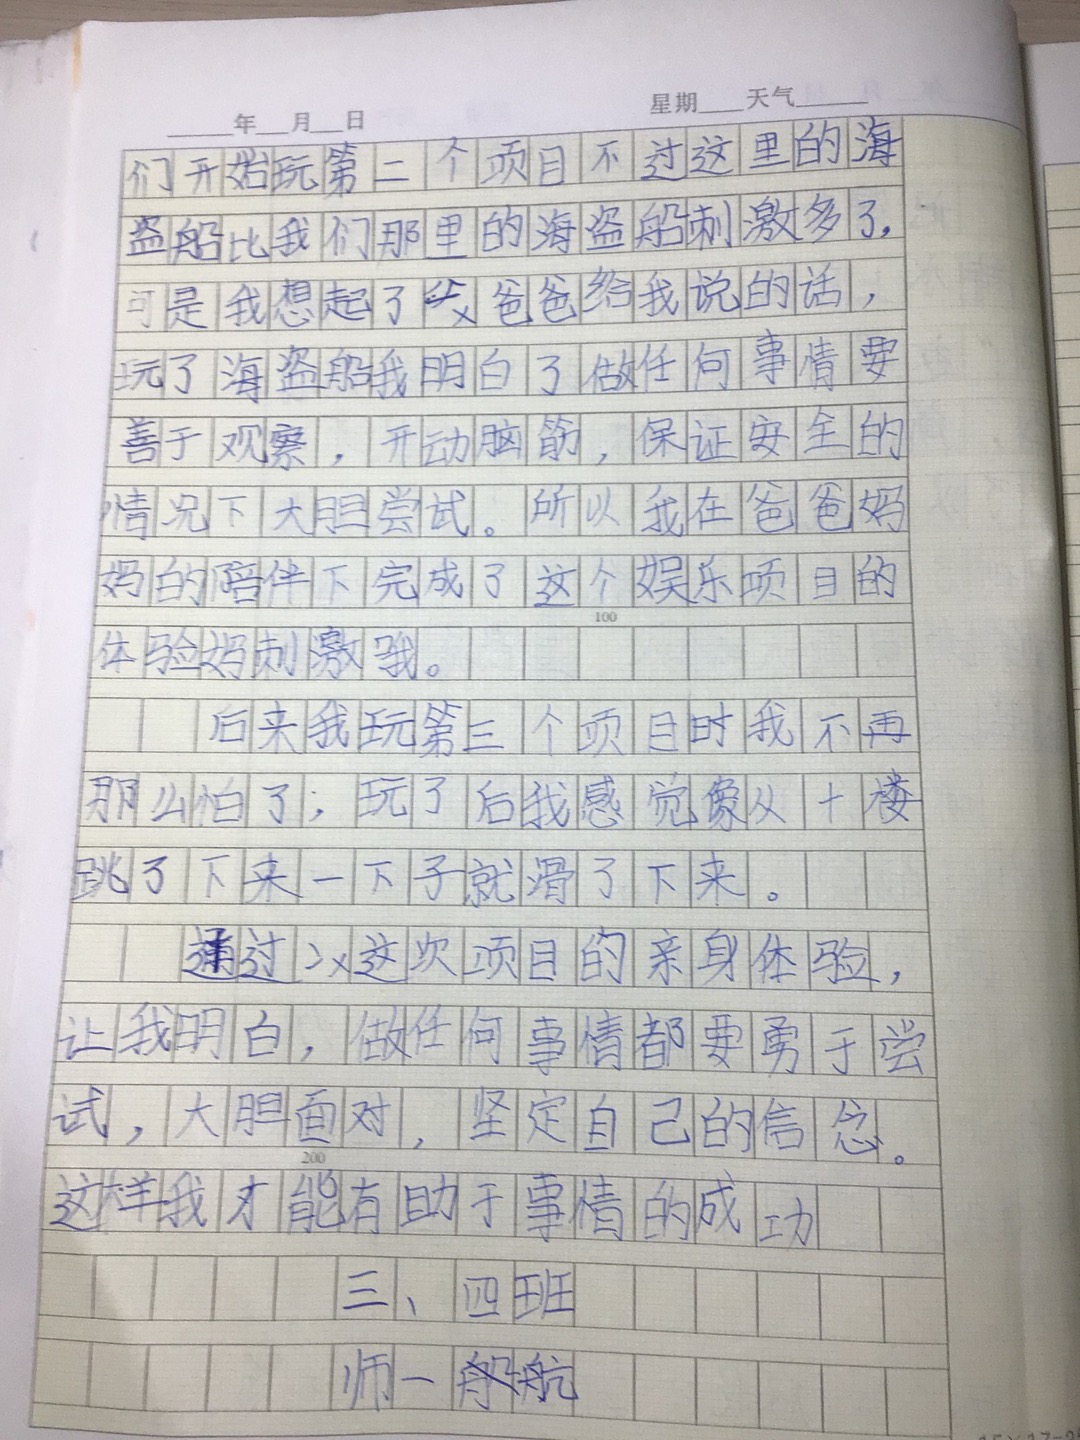 年 月 日 星期 天气
们开始玩第二个项目不过这里的海
盗船比我们那里的海盗船刺激多了,
可是我想起了爸爸给我说的话，
玩了海盗船我明白了做任何事情要
善于观察，开动脑筋，保证安全的
情况下大胆尝试。所以我在爸爸妈
妈的陪伴下完成了这个娱乐项目的
100
体验妈刺激哦。
后来我玩第三个项目时我不再
那么怕了；玩了后我感觉像从十楼
跳了下来一下子就滑了下来。
通过这次项目的亲身体验，
让我明白，做任何事情都要勇于尝
试，大胆面对，坚定自己的信念。
200
这样我才能有助于事情的成功
三、四班
师一航